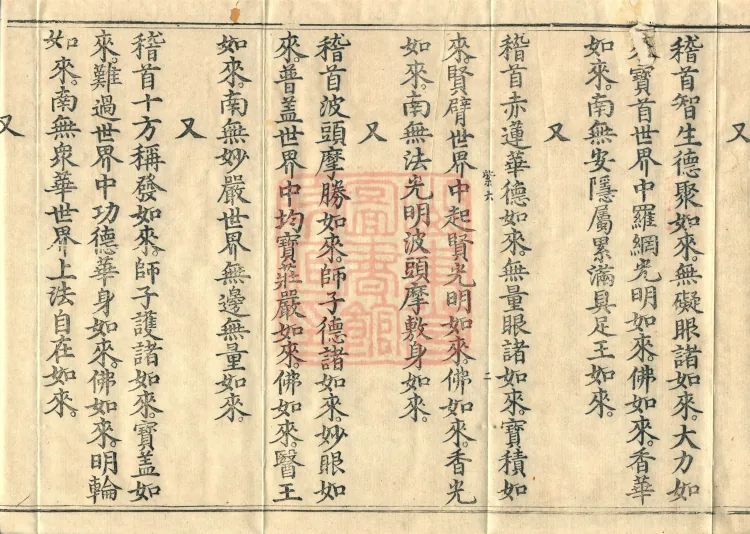 又
稽首智生德聚如來。無礙眼諸如來。大力如
來。寶首世界中羅網光明如來。佛如來。香華
如來。南無安隱屬累滿具足王如來。
又
稽首赤蓮華德如來。無量眼諸如來。寶積如
紫六 二
來。賢臂世界中起賢光明如來。佛如來。香光
如來。南無法光明波頭摩敷身如來。
又
稽首波頭摩勝如來。師子德諸如來。妙眼如
來。普盖世界中均寶莊嚴如來。佛如來。醫王
如來。南無妙嚴世界無邊無量如來。
又
稽首十方稱發如來。師子護諸如來。寶盖如
來。難過世界中功德華身如來。佛如來。明輪
如來。南無衆華世界上法自在如來。
又